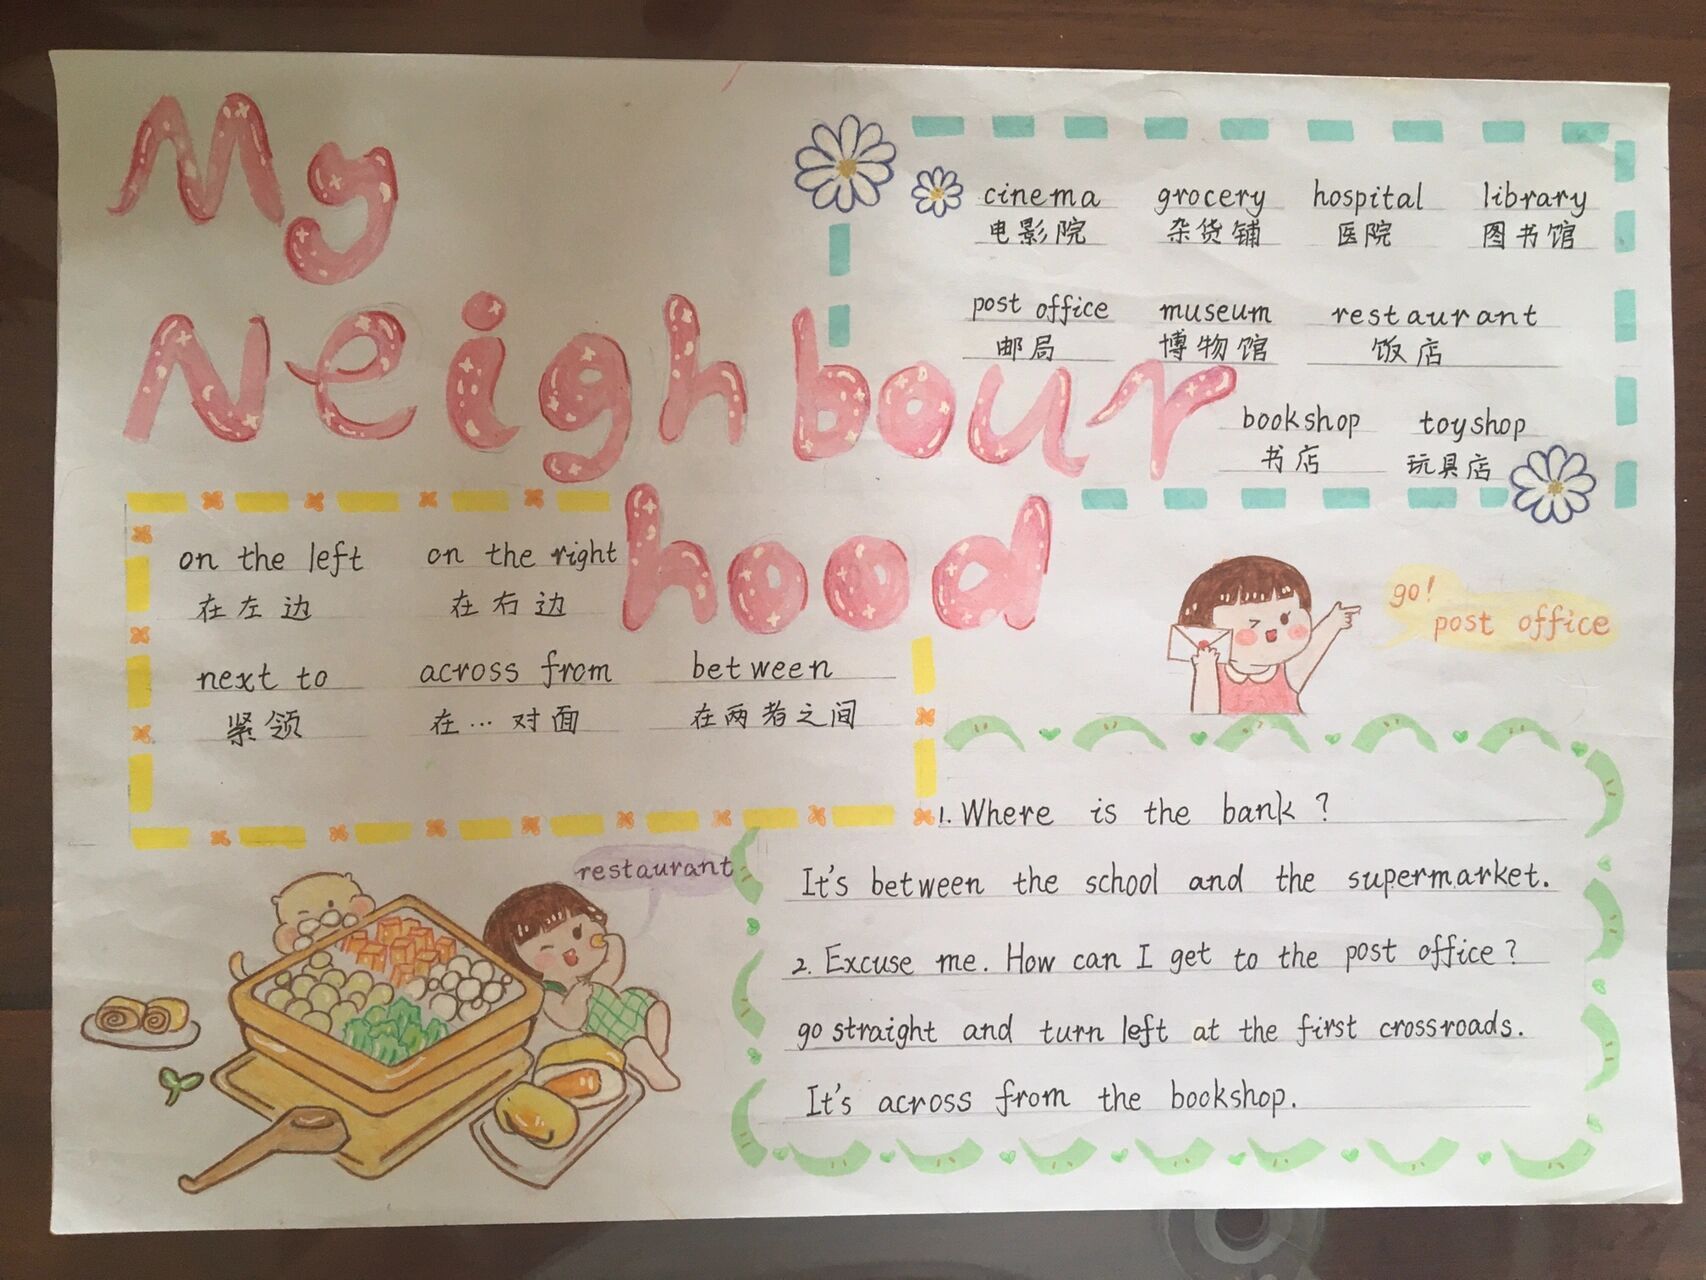 My
Neighbour
hood
cinema grocery hospital library
电影院 杂货铺 医院 图书馆
post office museum restaurant
邮局 博物馆 饭店
bookshop toyshop
书店 玩具店
on the left on the right
在左边 在右边
next to across from between
紧领 在…对面 在两者之间
go!
post office
restaurant
1. Where is the bank?
It's between the school and the supermarket.
2. Excuse me. How can I get to the post office?
go straight and turn left at the first crossroads.
It's across from the bookshop.